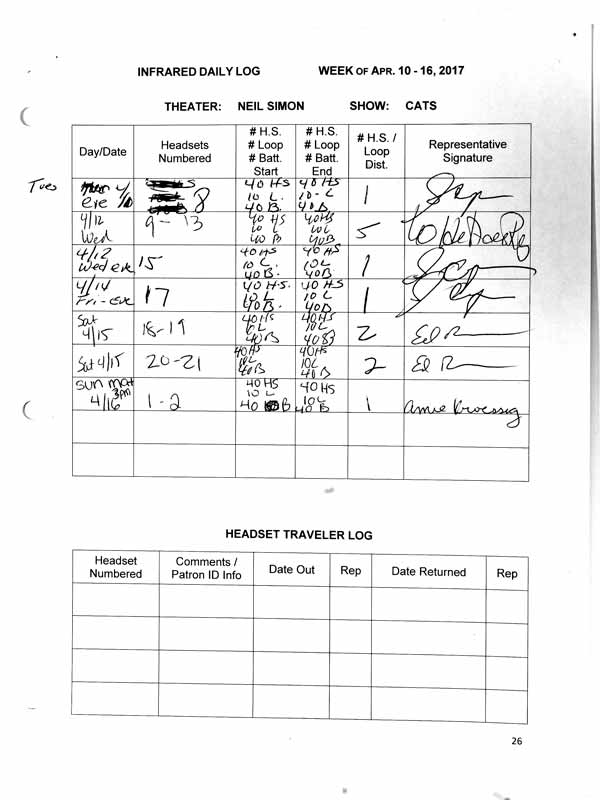 INFRARED DAILY LOG WEEK OF APR. 10 - 16, 2017
THEATER: NEIL SIMON SHOW: CATS
Day/Date
Headsets
Numbered
# H.S.
# Loop
# Batt.
Start
# H.S.
# Loop
# Batt.
End
# H.S. /
Loop
Dist.
Representative
Signature
Tues
eve
8
40 HS
10 L.
40 B.
40 HS
10- L
40 B
1
4/12
Wed
9 - 13
40 HS
10 L
40 B
40 HS
10 L
40 B.
5
4/12
Wed eve
15
40 HS
10 L.
40 B.
40 HS
10 L
40 B.
1
4/14
Fri - Eve
17
40 H.S.
10 L
40 B.
40 HS
10 L
40 B
1
Sat
4/15
18-19
40 HS
40 B
40 HS
10 L
2
Ed
Sat 4/15
20-21
40 HS
10 L
40 B
40 HS
10 L
40 B
2
Ed
Sun mat
3pm
4/16
1-2
40 HS
10 L
40 B
40 HS
10 L
40 B
1
HEADSET TRAVELER LOG
Headset
Numbered
Comments /
Patron ID Info
Date Out
Rep
Date Returned
Rep
26